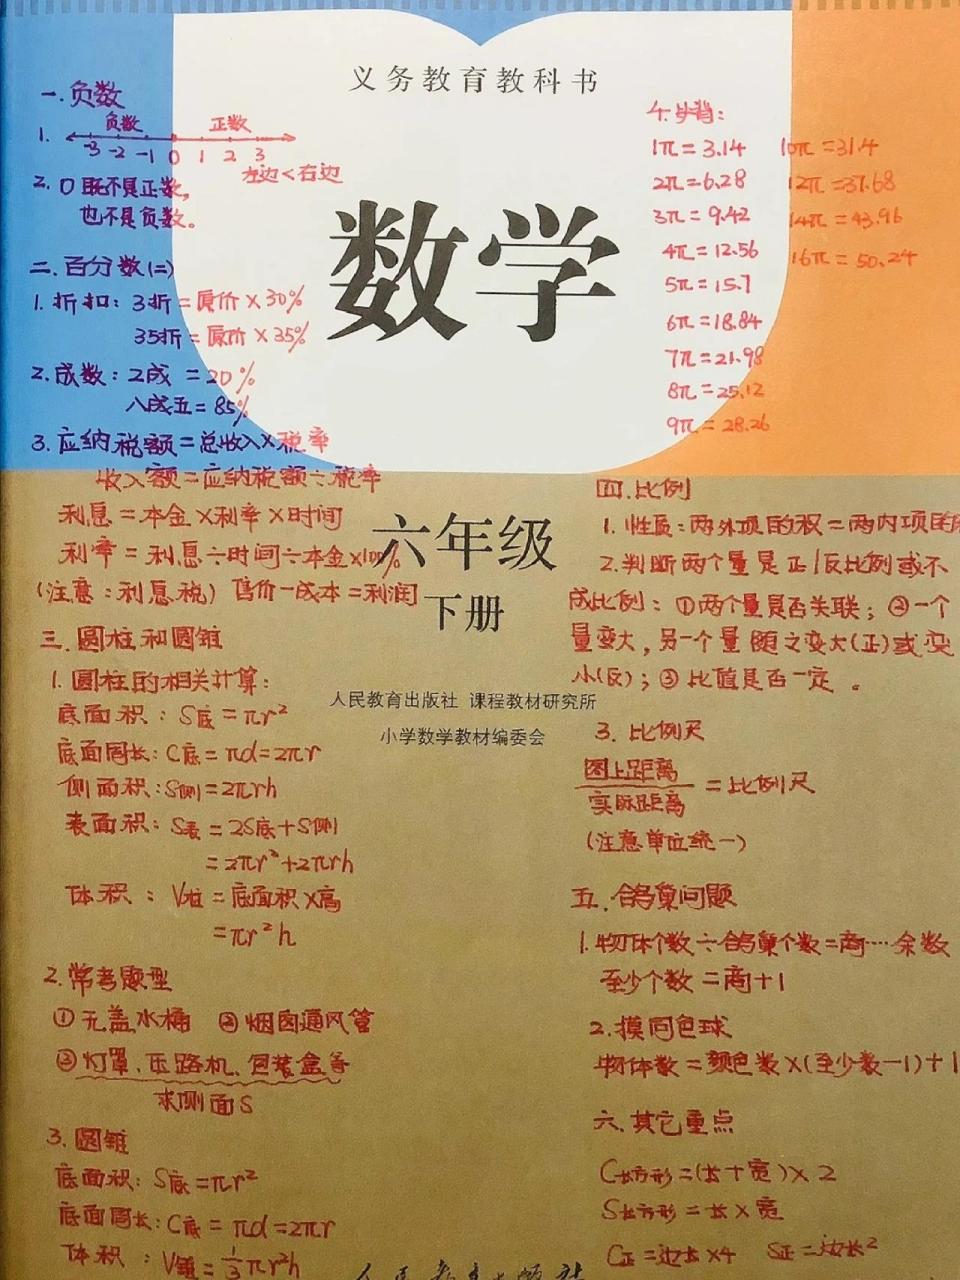 义务教育教科书
数学
六年级
下册
人民教育出版社 课程教材研究所
小学数学教材编委会
一.负数
1. 负数 正数
-3 -2 -1 0 1 2 3
左边<右边
2. 0既不是正数,
也不是负数。
二.百分数(二)
1.折扣: 3折=原价×30%
35折=原价×35%
2.成数:2成=20%
八成五=85%
3.应纳税额=总收入×税率
收入额=应纳税额÷税率
利息=本金×利率×时间
利率=利息÷时间÷本金×100%
(注意:利息税) 售价-成本=利润
三.圆柱和圆锥
1.圆柱的相关计算:
底面积:S底=πr²
底面周长:C底=πd=2πr
侧面积:S侧=2πrh
表面积:S表=2S底+S侧
=2πr²+2πrh
体积:V柱=底面积×高
=πr²h
2.常考题型
①无盖水桶 ②烟囱通风管
③灯罩、压路机、包装盒等
求侧面S
3.圆锥
底面积:S底=πr²
底面周长:C底=πd=2πr
体积:V锥=1/3πr²h
4.头背:
1π=3.14 10π=31.4
2π=6.28 12π=37.68
3π=9.42 14π=43.96
4π=12.56 16π=50.24
5π=15.7
6π=18.84
7π=21.98
8π=25.12
9π=28.26
四.比例
1.性质:两外项的积=两内项的
2.判断两个量是正/反比例或不
成比例:①两个量是否关联;②一个
量变大,另一个量随之变大(正)或变
小(反);③比值是否一定。
3.比例尺
图上距离
实际距离 =比例尺
(注意单位统一)
五.鸽巢问题
1.物体个数÷鸽巢个数=商…余数
至少个数=商+1
2.摸同色球
物体数=颜色数×(至少数-1)+1
六.其它重点
C长方形=(长+宽)×2
S长方形=长×宽
C正=边长×4 S正=边长²
人民教育出版社